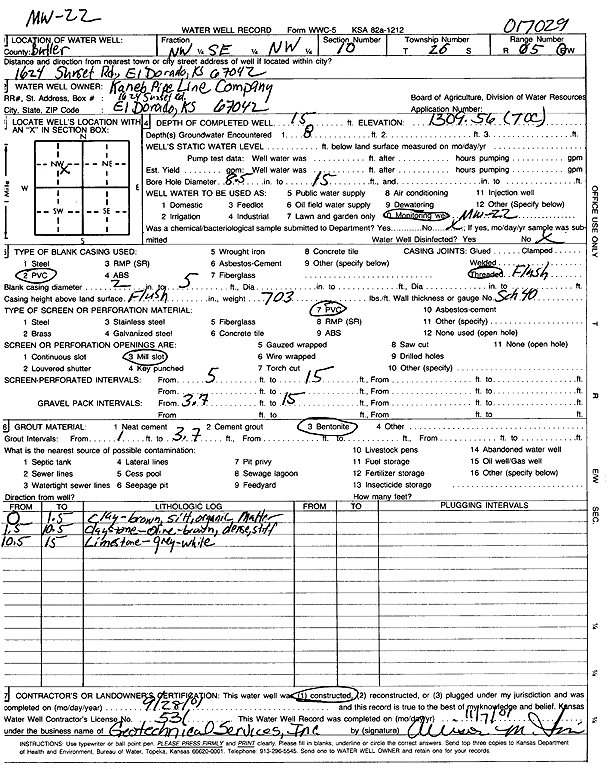 MW-22
017029
WATER WELL RECORD Form WWC-5 KSA 82a-1212
1 LOCATION OF WATER WELL: Fraction Section Number Township Number Range Number
County: Butler NW ¼ SE ¼ NW ¼ 10 T 26 S R 05 E/W
Distance and direction from nearest town or city street address of well if located within city?
1624 Sunset Rd, El Dorado, KS 67042
2 WATER WELL OWNER: Kaneb Pipe Line Company
RR#, St. Address, Box # : 1624 Sunset Rd Board of Agriculture, Division of Water Resources
City, State, ZIP Code : El Dorado, KS 67042 Application Number:
3 LOCATE WELL'S LOCATION WITH AN "X" IN SECTION BOX:
N
NW NE
W E
SW SE
S
1 Mile
X
4 DEPTH OF COMPLETED WELL 15 ft. ELEVATION: 1309.56 (TOC)
Depth(s) Groundwater Encountered 1. 8 ft. 2. ft. 3. ft.
WELL'S STATIC WATER LEVEL ft. below land surface measured on mo/day/yr
Pump test data: Well water was ft. after hours pumping gpm
Est. Yield gpm: Well water was ft. after hours pumping gpm
Bore Hole Diameter 8.5 in. to 15 ft., and in. to ft.
WELL WATER TO BE USED AS: 5 Public water supply 8 Air conditioning 11 Injection well
1 Domestic 3 Feedlot 6 Oil field water supply 9 Dewatering 12 Other (Specify below)
2 Irrigation 4 Industrial 7 Lawn and garden only 10 Monitoring well MW-22
Was a chemical/bacteriological sample submitted to Department? Yes No X; If yes, mo/day/yr sample was submitted
Water Well Disinfected? Yes No X
5 TYPE OF BLANK CASING USED: 5 Wrought iron 8 Concrete tile CASING JOINTS: Glued Clamped
1 Steel 3 RMP (SR) 6 Asbestos-Cement 9 Other (specify below) Welded
2 PVC 4 ABS 7 Fiberglass Threaded Flush
Blank casing diameter 2 in. to 5 ft., Dia in. to ft., Dia in. to ft.
Casing height above land surface Flush in., weight .703 lbs./ft. Wall thickness or gauge No. Sch 40
TYPE OF SCREEN OR PERFORATION MATERIAL: 7 PVC 10 Asbestos-cement
1 Steel 3 Stainless steel 5 Fiberglass 8 RMP (SR) 11 Other (specify)
2 Brass 4 Galvanized steel 6 Concrete tile 9 ABS 12 None used (open hole)
SCREEN OR PERFORATION OPENINGS ARE: 5 Gauzed wrapped 8 Saw cut 11 None (open hole)
1 Continuous slot 3 Mill slot 6 Wire wrapped 9 Drilled holes
2 Louvered shutter 4 Key punched 7 Torch cut 10 Other (specify)
SCREEN-PERFORATED INTERVALS: From 5 ft. to 15 ft., From ft. to ft.
From ft. to ft., From ft. to ft.
GRAVEL PACK INTERVALS: From 3.7 ft. to 15 ft., From ft. to ft.
From ft. to ft., From ft. to ft.
6 GROUT MATERIAL: 1 Neat cement 2 Cement grout 3 Bentonite 4 Other
Grout Intervals: From 1 ft. to 3.7 ft., From ft. to ft., From ft. to ft.
What is the nearest source of possible contamination: 10 Livestock pens 14 Abandoned water well
1 Septic tank 4 Lateral lines 7 Pit privy 11 Fuel storage 15 Oil well/Gas well
2 Sewer lines 5 Cess pool 8 Sewage lagoon 12 Fertilizer storage 16 Other (specify below)
3 Watertight sewer lines 6 Seepage pit 9 Feedyard 13 Insecticide storage
Direction from well? How many feet?
FROM TO LITHOLOGIC LOG FROM TO PLUGGING INTERVALS
0 1.5 Clay-brown, silt, organic matter
1.5 10.5 Claystone-olive-brown, dense, stiff
10.5 15 Limestone-grey-white
7 CONTRACTOR'S OR LANDOWNER'S CERTIFICATION: This water well was (1) constructed, (2) reconstructed, or (3) plugged under my jurisdiction and was
completed on (mo/day/year) 9/28/01 and this record is true to the best of my knowledge and belief. Kansas
Water Well Contractor's License No. 531 This Water Well Record was completed on (mo/day/yr) 11/7/01
under the business name of Geotechnical Services, Inc by (signature)
INSTRUCTIONS: Use typewriter or ball point pen. PLEASE PRESS FIRMLY and PRINT clearly. Please fill in blanks, underline or circle the correct answers. Send top three copies to Kansas Department
of Health and Environment, Bureau of Water, Topeka, Kansas 66620-0001. Telephone: 913-296-5545. Send one to WATER WELL OWNER and retain one for your records.
OFFICE USE ONLY
T
R
E/W
SEC.
¼
¼
¼